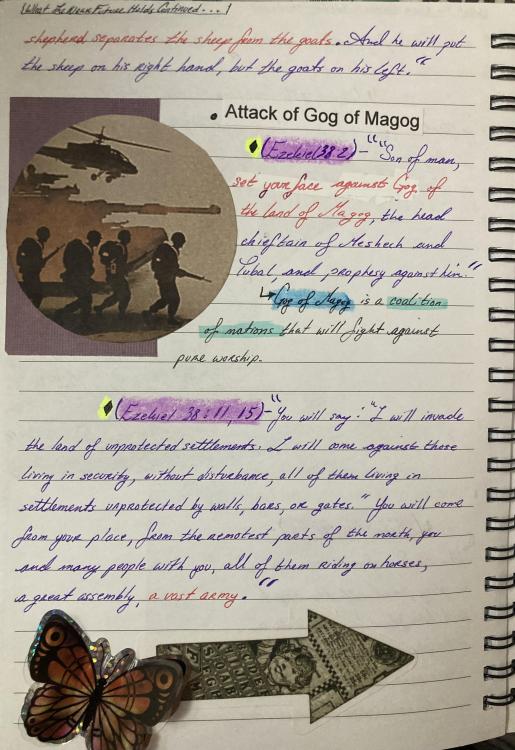 (What The Near Future Holds Continued...)
shepherd separates the sheep from the goats. And he will put
the sheep on his right hand, but the goats on his left."
• Attack of Gog of Magog
(Ezekiel 38:2) - ""Son of man,
set your face against Gog of
the land of Magog, the head
chieftain of Meshech and
Tubal, and prophesy against him."
↳ Gog of Magog is a coalition
of nations that will fight against
pure worship.
(Ezekiel 38:11, 15) - "You will say: "I will invade
the land of unprotected settlements. I will come against those
living in security, without disturbance, all of them living in
settlements unprotected by walls, bars, or gates." You will come
from your place, from the remotest parts of the north, you
and many people with you, all of them riding on horses,
a great assembly, a vast army."